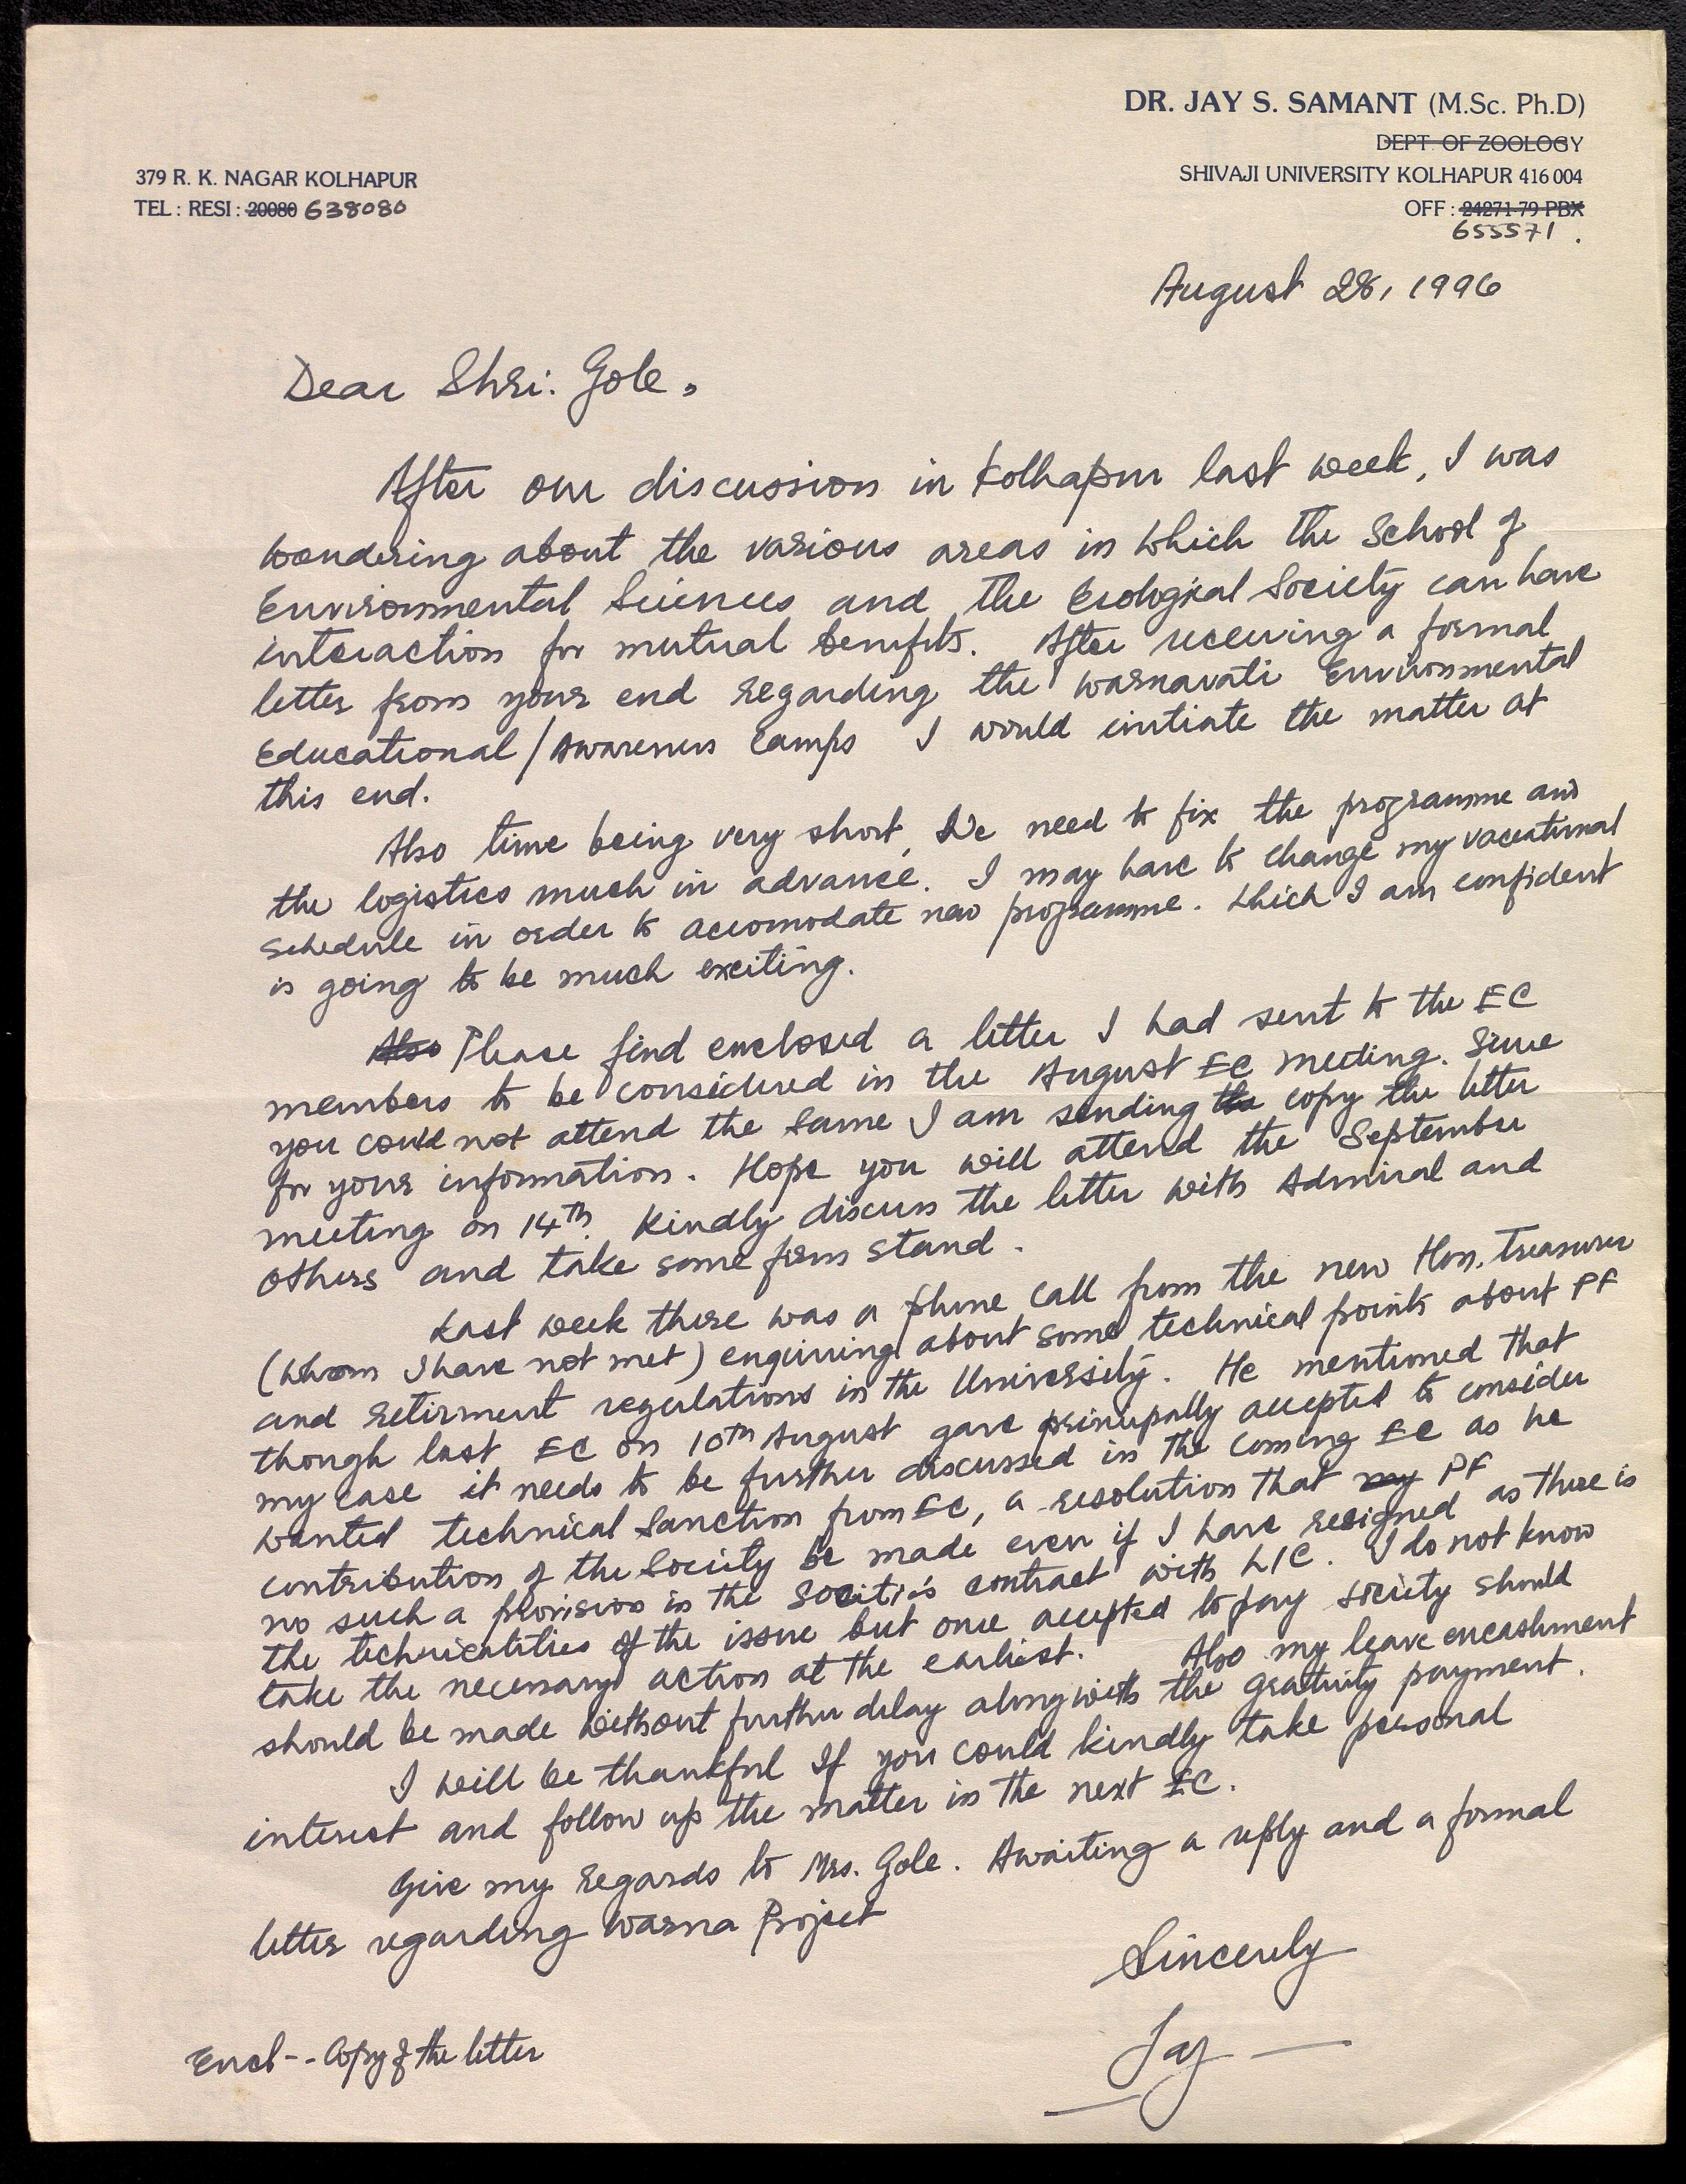 DR. JAY S. SAMANT (M.Sc. Ph.D)
DEPT. OF ZOOLOGY
SHIVAJI UNIVERSITY KOLHAPUR 416 004
OFF : 24271-79 PBX
655571.
379 R. K. NAGAR KOLHAPUR
TEL : RESI : 20080 638080
August 28, 1996
Dear Shri. Gole,
After our discussion in Kolhapur last week, I was
wondering about the various areas in which the School of
Environmental Sciences and the Ecological Society can have
interaction for mutual benefits. After receiving a formal
letter from your end regarding the Warnavati Environmental
Educational / Awareness Camps I would initiate the matter at
this end.
Also time being very short, We need to fix the programme and
the logistics much in advance. I may have to change my vacational
schedule in order to accomodate new programme. Which I am confident
is going to be much exciting.
Also Please find enclosed a letter I had sent to the EC
members to be considered in the August EC meeting. Since
you could not attend the same I am sending the copy the letter
for your information. Hope you will attend the September
meeting on 14th. Kindly discuss the letter with Admiral and
others and take some firm stand.
Last week there was a phone call from the new Hon. Treasurer
(Whom I have not met) enquiring about some technical points about PF
and retirment regulations in the University. He mentioned that
though last EC on 10th August gave principally accepted to consider
my case it needs to be further discussed in the coming EC as he
wanted technical sanction from EC, a resolution that my PF
contribution of the Society be made even if I have resigned as there is
no such a provision in the Socities contract with LIC. I do not know
the technicalities of the issue but once accepted to pay society should
take the necessary action at the earliest. Also my leave encashment
should be made without further delay alongwith the gratuity payment.
I will be thankful If you could kindly take personal
interest and follow up the matter in the next EC.
Give my regards to Mrs. Gole. Awaiting a reply and a formal
letter regarding Warna Project
Sincerely
Jay
Encl-- Copy of the letter